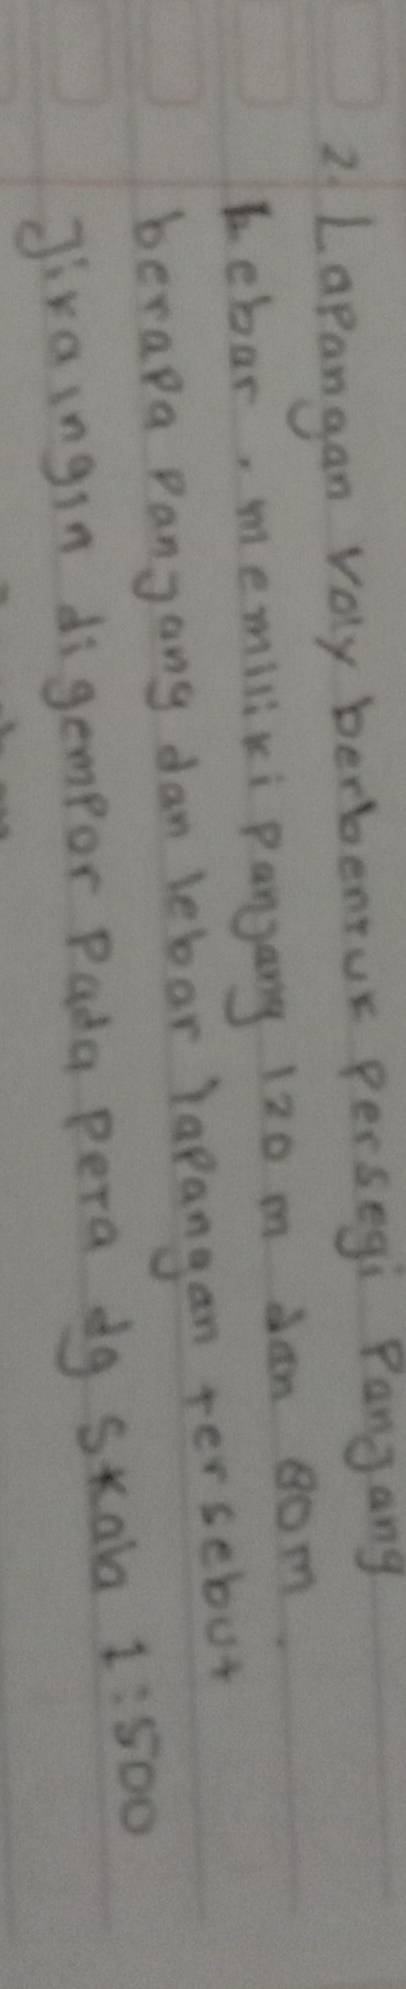 2. Lapangan Voly berbentuk Persegi Panjang
Lebar, memiliki Panjang 120 m dan 80m.
berapa Panjang dan lebar lapangan tersebut
Jika ingin digempor Pada Peta dg Skala 1:500